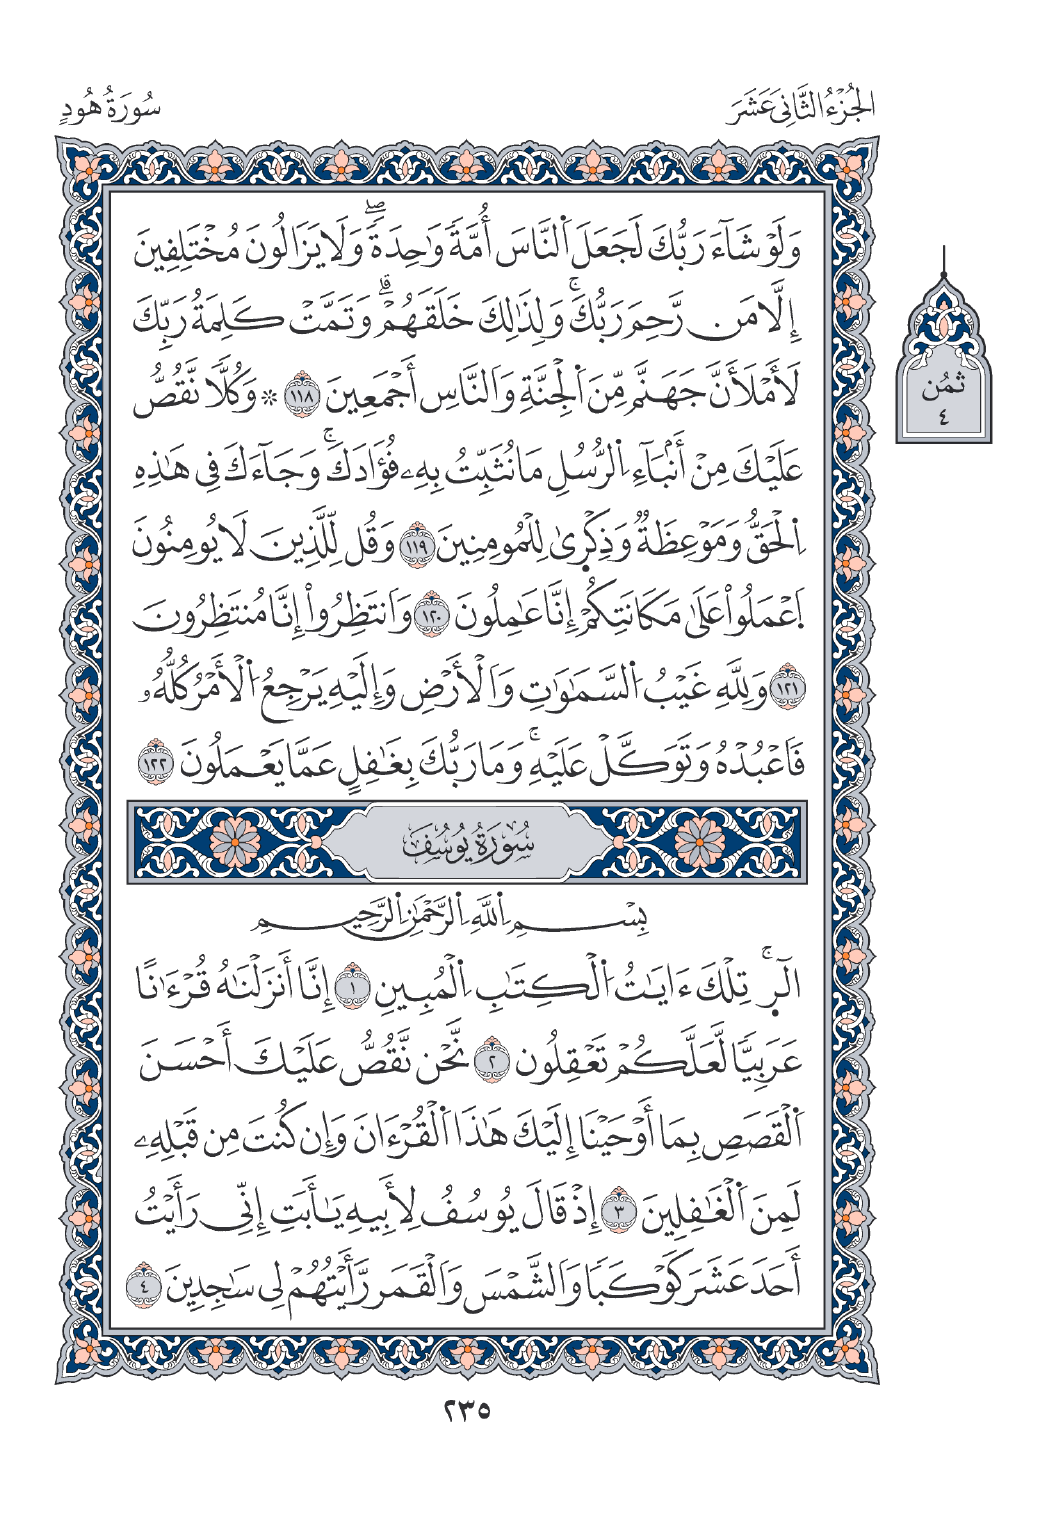 الجُزْءُ الثَّانِي عَشَرَ
سُورَةُ هُودٍ
وَلَوْ شَآءَ رَبُّكَ لَجَعَلَ اَ۬لنَّاسَ أُمَّةٗ وَٰحِدَةٗۖ وَلَا يَزَالُونَ مُخْتَلِفِينَ
إِلَّا مَن رَّحِمَ رَبُّكَۚ وَلِذَٰلِكَ خَلَقَهُمْۗ وَتَمَّتْ كَلِمَةُ رَبِّكَ
لَأَمْلَأَنَّ جَهَنَّمَ مِنَ اَ۬لْجِنَّةِ وَالنَّاسِ أَجْمَعِينَ ١١٨ ۞ وَكُلّٗا نَّقُصُّ
عَلَيْكَ مِنْ أَنۢبَآءِ اِ۬لرُّسُلِ مَا نُثَبِّتُ بِهِۦ فُؤَادَكَۚ وَجَآءَكَ فِي هَٰذِهِ
اِ۬لْحَقُّ وَمَوْعِظَةٞ وَذِكْر۪يٰ لِلْمُومِنِينَ ١١٩ وَقُل لِّلَّذِينَ لَا يُومِنُونَ
اَ۪عْمَلُواْ عَلَىٰ مَكَانَتِكُمْ إِنَّا عَٰمِلُونَ ١٢٠ وَانتَظِرُواْ إِنَّا مُنتَظِرُونَ
١٢١ وَلِلهِ غَيْبُ اُ۬لسَّمَٰوَٰتِ وَالْأَرْضِ وَإِلَيْهِ يَرْجِعُ اُ۬لْأَمْرُ كُلُّهُۥ
فَاعْبُدْهُ وَتَوَكَّلْ عَلَيْهِۚ وَمَا رَبُّكَ بِغَٰفِلٍ عَمَّا يَعْمَلُونَ ١٢٢
ثُمُن
٤
سُورَةُ يُوسُفَ
بِسْمِ اِ۬للَّهِ اِ۬لرَّحْمَٰنِ اِ۬لرَّحِيمِ
أَلَٓر۪ۚ تِلْكَ ءَايَٰتُ اُ۬لْكِتَٰبِ اِ۬لْمُبِينِ ١ إِنَّا أَنزَلْنَٰهُ قُرْءَٰنًا
عَرَبِيّٗا لَّعَلَّكُمْ تَعْقِلُون ٢ نَّحْن نَّقُصُّ عَلَيْكَ أَحْسَنَ
اَ۬لْقَصَصِ بِمَا أَوْحَيْنَا إِلَيْكَ هَٰذَا اَ۬لْقُرْءَانَ وَإِن كُنتَ مِن قَبْلِهِۦ
لَمِنَ اَ۬لْغَٰفِلِينَ ٣ إِذْ قَالَ يُوسُفُ لِأَبِيهِ يَٰأَبَتِ إِنِّي رَأَيْتُ
أَحَدَ عَشَرَ كَوْكَبٗا وَالشَّمْسَ وَالْقَمَر رَّأَيْتُهُمْ لِي سَٰجِدِينَ ٤
٢٣٥